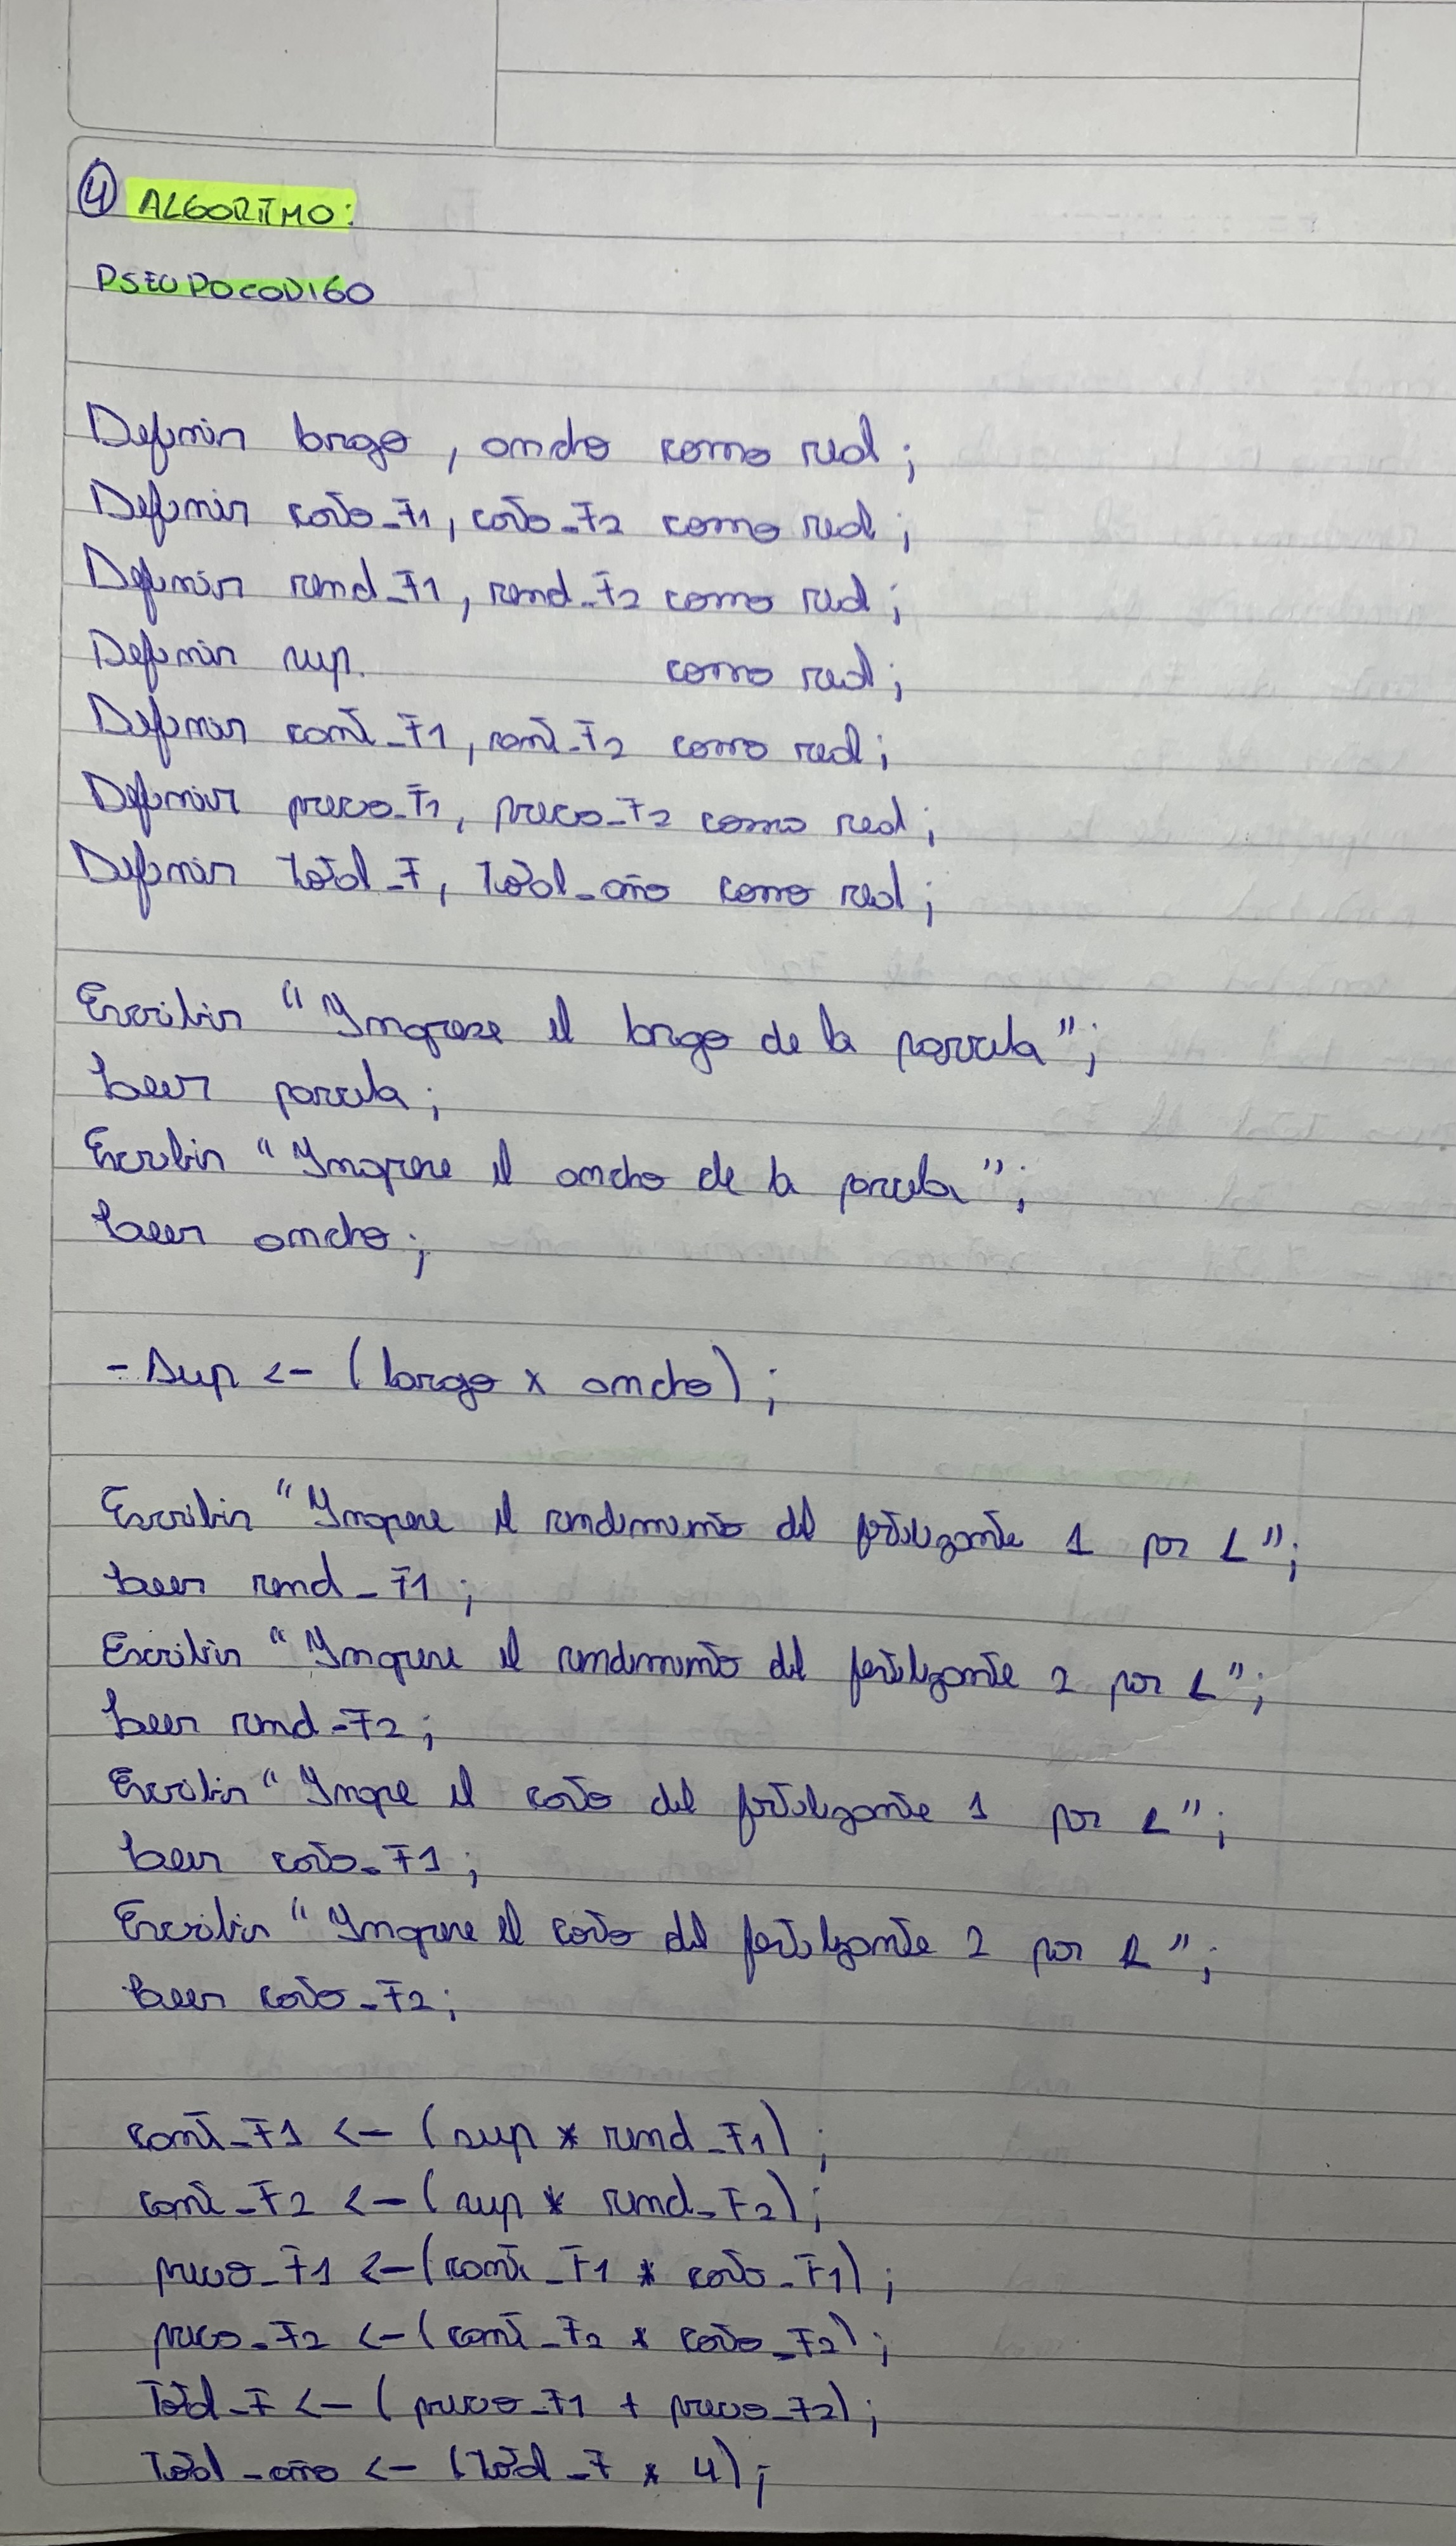 ④ ALGORITMO:
PSEUDOCODIGO
Definir largo, ancho como real;
Definir costo_F1, costo_F2 como real;
Definir rend_F1, rend_F2 como real;
Definir sup. como real;
Definir cant_F1, cant_F2 como real;
Definir precio_F1, precio_F2 como real;
Definir Total_F, Total_año como real;
Escribir "Ingrese el largo de la parcela";
Leer parcela;
Escribir "Ingrese el ancho de la parcela";
Leer ancho;
- Sup <- (largo x ancho);
Escribir "Ingrese el rendimiento del fertilizante 1 por L";
Leer rend_F1;
Escribir "Ingrese el rendimiento del fertilizante 2 por L";
Leer rend_F2;
Escribir "Ingre el costo del fertilizante 1 por L";
Leer costo_F1;
Escribir "Ingrese el costo del fertilizante 2 por L";
Leer costo_F2;
cant_F1 <- (sup * rend_F1);
cant_F2 <- (sup * rend_F2);
precio_F1 <- (cant_F1 * costo_F1);
precio_F2 <- (cant_F2 * costo_F2);
Total_F <- (precio_F1 + precio_F2);
Total_año <- (Total_F * 4);